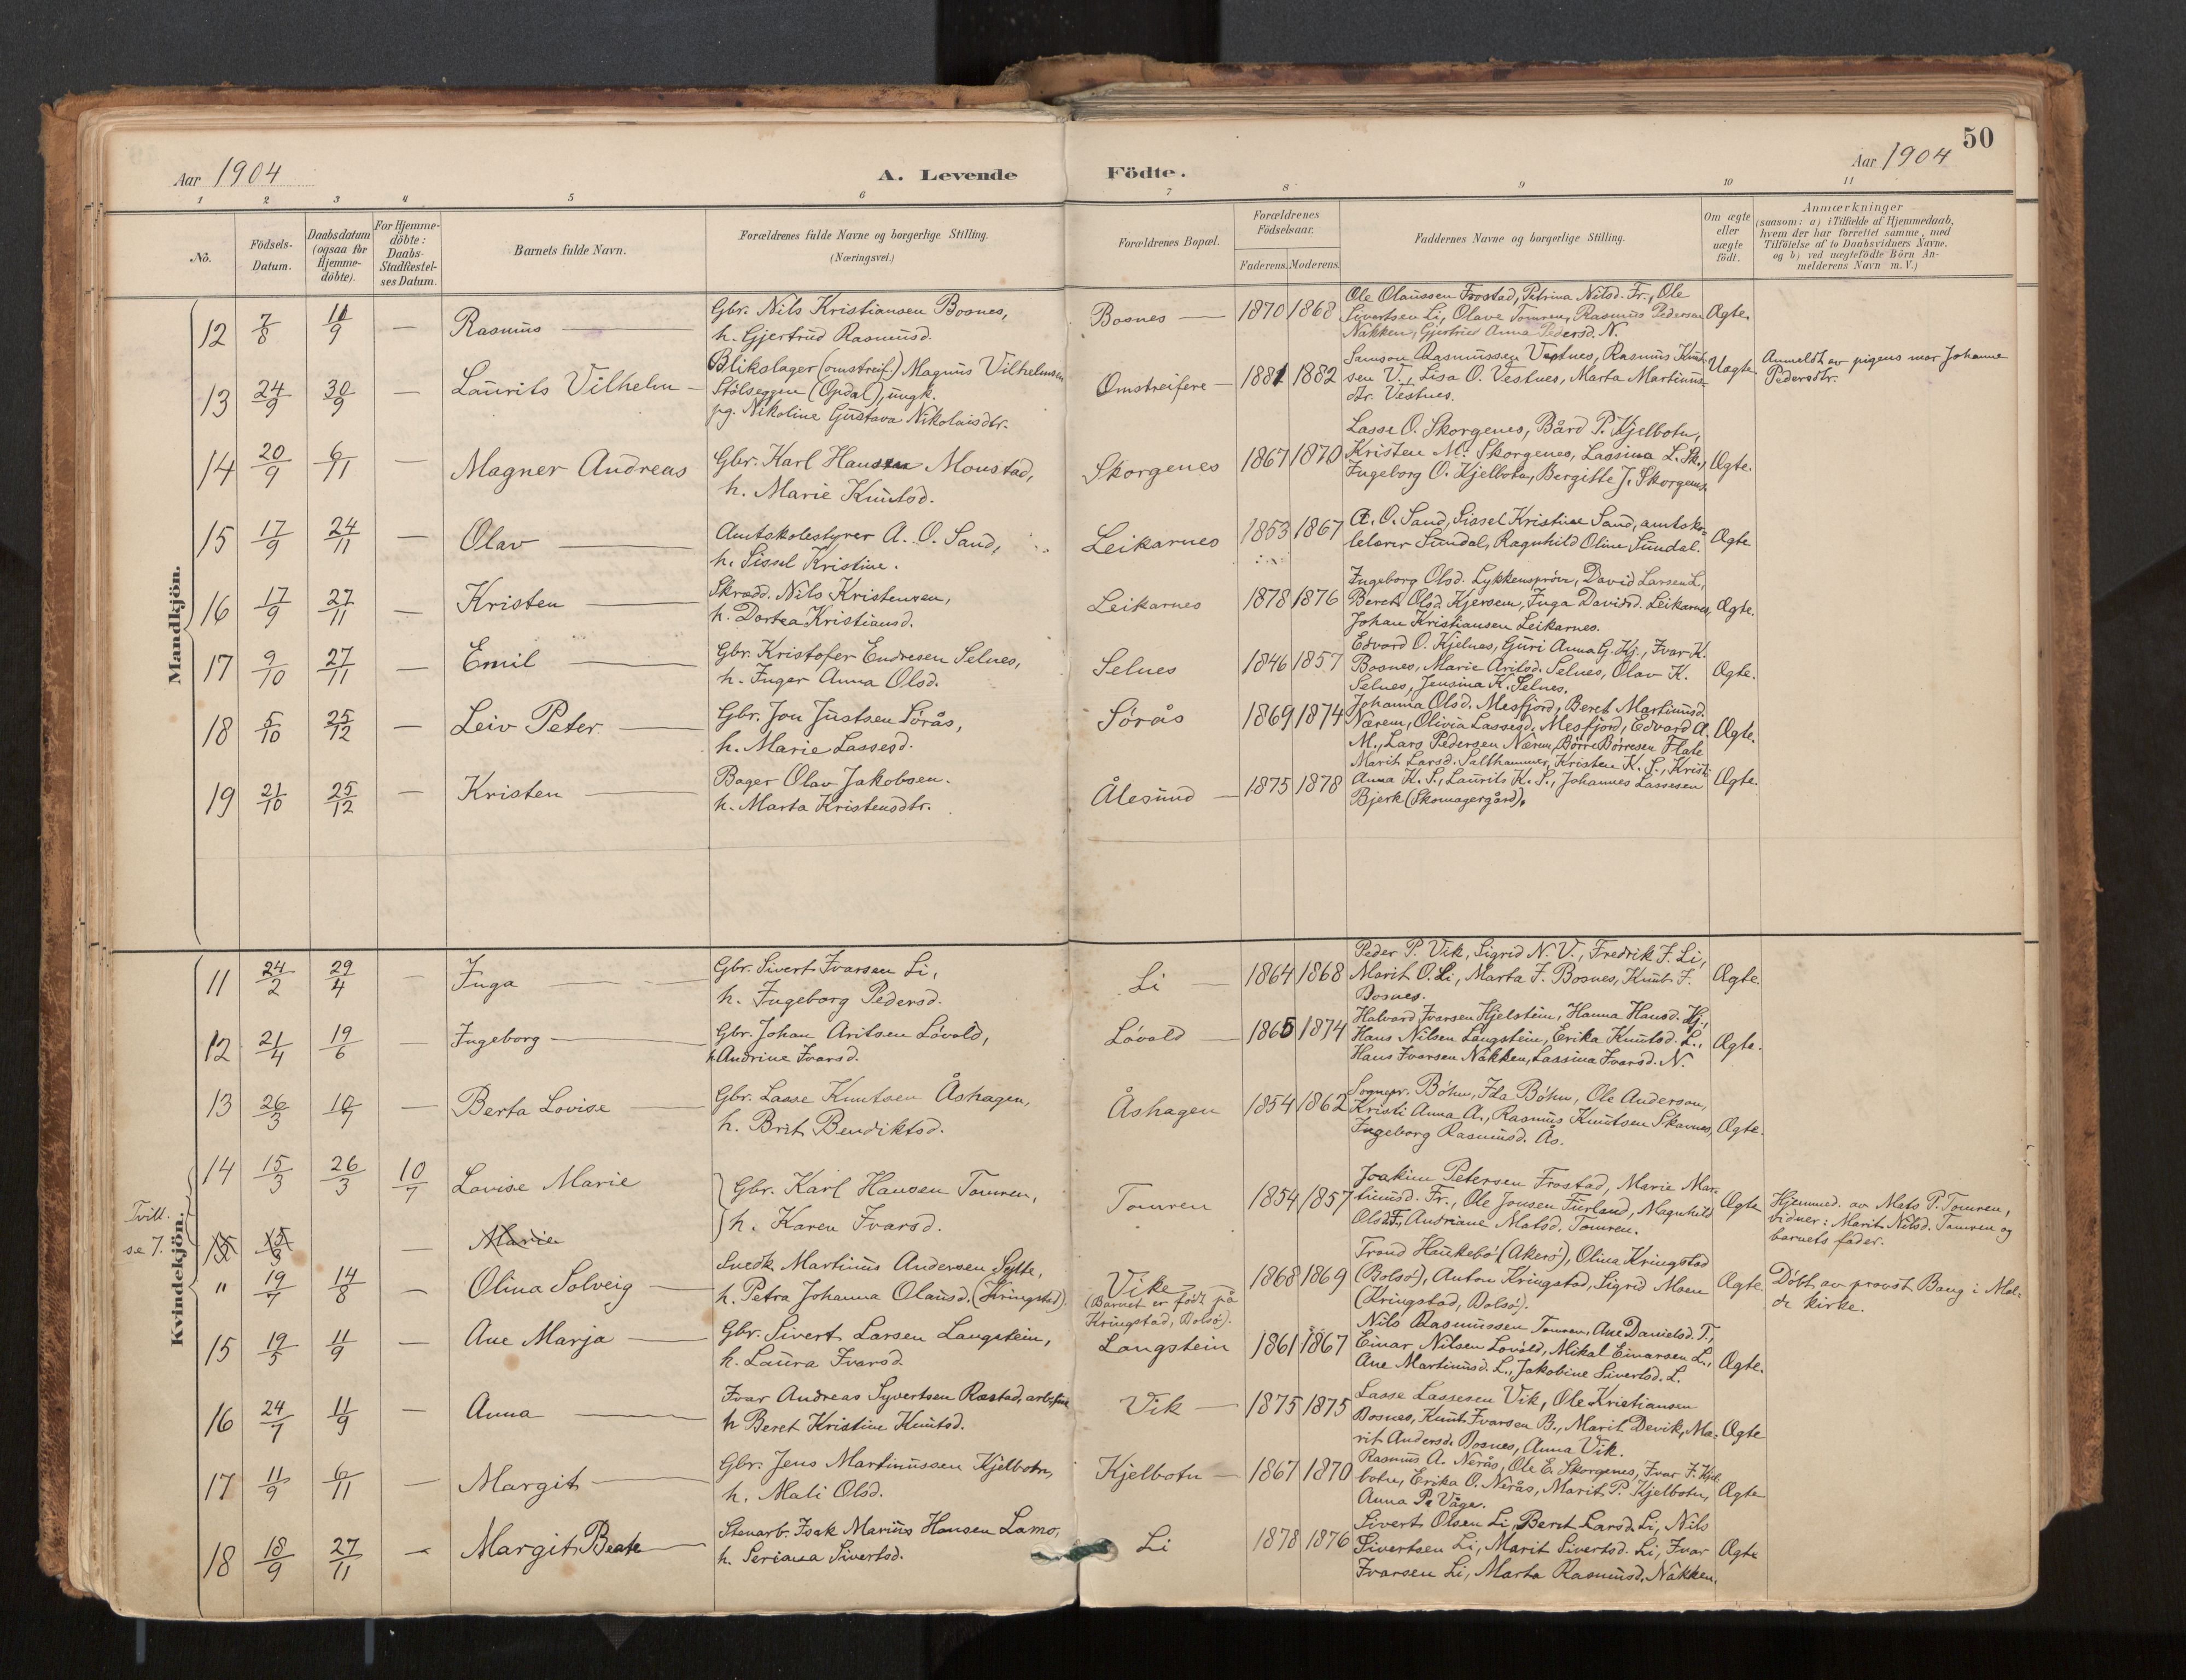 50
Aar 1904
A. Levende Födte.
Aar 1904
1 2 3 4 5 6 7 8 9 10 11
No.
Födsels-Datum.
Daabsdatum (ogsaa for Hjemme-döbte).
For Hjemme-döbte: Daabs-Stadfæstel-ses Datum.
Barnets fulde Navn.
Forældrenes fulde Navne og borgerlige Stilling.
(Næringsvei.)
Forældrenes Bopæl.
Forældrenes Födselsaar.
Faderens. Moderens.
Faddernes Navne og borgerlige Stilling.
Om ægte eller uægte födt.
Anmærkninger
(saasom: a) i Tilfælde af Hjemmedaab,
hvem der har forrettet samme, med
Tilföielse af to Daabsvidners Navne.
og b) ved uægtefödte Börn An-
melderens Navn m. V.)
Mandkjön.
12 7/8 11/9 — Rasmus —
Gbr. Nils Kristiansen Bosnes,
h. Gjertrud Rasmusd.
Bosnes — 1870 1868
Ole Olaussen Frostad, Petrina Nilsd. Fr., Ole
Sivertsen Li, Olave Tomren, Rasmus Pedersen
Nakken, Gjertrud Anna Pedersd. N.
Ægte.
13 24/9 30/9 — Laurits Vilhelm —
Blikslager (omstreif.) Magnus Vilhelmsen
Stölseggen (Opdal), ungk.
pg. Nikoline Gustava Nikolaisdtr.
Omstreifere — 1881 1882
Samson Rasmussen Vestnes, Rasmus Knut-
sen V., Lisa O. Vestnes, Marta Martinus-
dtr. Vestnes.
Uægte
Anmeldt av pigens mor Johanne
Pedersdtr.
14 20/9 6/11 — Magner Andreas
Gbr. Karl Hansen Monstad,
h. Marie Knutsd.
Skorgenes 1867 1870
Lasse O. Skorgenes, Bård P. Kjelbotn,
Kristen M. Skorgenes, Lassina L. Sk.,
Ingeborg O. Kjelbotn, Bergitte J. Skorgenes.
Ægte.
15 17/9 24/11 — Olav —
Amtskolestyrer A. O. Sand,
h. Sissel Kristine.
Leikarnes 1853 1867
A. O. Sand, Sissel Kristine Sand, amtsko-
lelærer Sundal, Ragnhild Oline Sundal.
Ægte
16 17/9 27/11 — Kristen —
Skrædd. Nils Kristensen,
h. Dortea Kristiansd.
Leikarnes 1878 1876
Ingeborg Olsd. Lykkenspröve, David Larsen L.,
Beret Olsd. Kjersem, Inga Davidsd. Leikarnes,
Johan Kristiansen Leikarnes.
Ægte.
17 9/10 27/11 — Emil —
Gbr. Kristofer Endresen Selnes,
h. Inger Anna Olsd.
Selnes 1846 1857
Edvard O. Kjelnes, Guri Anna G. Kj., Ivar K.
Bosnes, Marie Arilsd. Selnes, Olav K.
Selnes, Jensina K. Selnes.
Ægte.
18 5/10 25/12 — Leiv Peter —
Gbr. Jon Justsen Sörås,
h. Marie Lassesd.
Sörås 1869 1874
Johanna Olsd. Mesfjord, Beret Martinusd.
Nærem, Olivia Lassesd. Mesfjord, Edvard A.
M., Lars Pedersen Nærem, Börre Börresen Flate
Ægte.
19 21/10 25/12 — Kristen —
Bager Olav Jakobsen.
h. Marta Kristensdtr.
Ålesund — 1875 1878
Marit Larsd. Salthammer, Kristen K. S., Kristi
Anna K. S., Laurits K. S., Johannes Lassesen
Bjerk (Skomagergård).
Ægte.
Kvindekjön.
11 24/2 29/4 — Inga —
Gbr. Sivert Ivarsen Li,
h. Ingeborg Pedersd.
Li — 1864 1868
Peder P. Vik, Sigrid N. V., Fredrik F. Li,
Marit O. Li, Marta F. Bosnes, Knut F.
Bosnes.
Ægte.
12 21/4 19/6 — Ingeborg —
Gbr. Johan Arilsen Lövold,
h. Andrine Ivarsd.
Lövold — 1865 1874
Halvard Ivarsen Hjelstein, Hanna Hansd. Hj.,
Hans Nilsen Langstein, Erika Knutsd. L.,
Hans Ivarsen Nakken, Lassina Ivarsd. N.
Ægte.
13 26/3 10/7 — Berta Lovise —
Gbr. Lasse Knutsen Åshagen,
h. Brit Bendiktsd.
Åshagen 1854 1862
Sognepr. Böhn, Ida Böhn, Ole Anderson,
Kristi Anna A., Rasmus Knutsen Skavnes,
Ingeborg Rasmusd. Ås.
Ægte.
Tvill.
se 7.
14 15/3 26/3 10/7 Lovise Marie
Gbr. Karl Hansen Tomren,
h. Karen Ivarsd.
Tomren 1854 1857
Joakim Petersen Frostad, Marie Mar-
tinusd. Fr., Ole Jonsen Furland, Magnhild
Olsd. F., Andriane Matsd. Tomren.
Ægte
Hjemmed. av Mats P. Tomren,
vidner: Marit Nilsd. Tomren og
barnets fader.
15 15/3 — Marie
" 19/7 14/8 — Olina Solveig —
Snedk. Martinus Andersen Sylte,
h. Petra Johanna Olausd. (Kringstad)
Vike —
(Barnet er født på
Kringstad, Bolsö).
1868 1869
Trond Haukebö (Akerö), Olina Kringstad
(Bolsö), Anton Kringstad, Sigrid Moen
(Kringstad, Bolsö).
Ægte
Döbt av provst Bang i Mol-
de kirke.
15 19/5 11/9 — Ane Marja —
Gbr. Sivert Larsen Langstein,
h. Laura Ivarsd.
Langstein 1861 1867
Nils Rasmussen Tomren, Ane Danielsd. T.,
Einar Nilsen Lovold, Mikal Einarsen L.,
Ane Martinusd. L., Jakobine Sivertsd. L.
Ægte.
16 24/7 11/9 — Anna —
Ivar Andreas Syvertsen Rastad,
h Beret Kristine Knutsd.
Vik — 1875 1875
Lasse Lassesen Vik, Ole Kristiansen
Bosnes, Knut Ivarsen B., Marit Devik, Ma-
rit Andersd. Bosnes, Anna Vik.
Ægte
17 11/9 6/11 — Margit —
Gbr. Jens Martinussen Kjelbotn,
h. Mali Olsd.
Kjelbotn — 1867 1870
Rasmus A. Nerås, Ole E. Skorgenes, Ivar F. Kjel-
botn, Erika O. Nerås, Marit P. Kjelbotn,
Anna P. Våge.
Ægte
18 18/9 27/11 — Margit Beate —
Stenarb. Isak Marius Hansen Lamo,
h. Seriana Sivertsd.
Li 1878 1876
Sivert Olsen Li, Beret Larsd. Li, Nils
Sivertsen Li, Marit Sivertsd. Li, Ivar
Ivarsen Li, Marta Rasmusd. Nakken.
Ægte